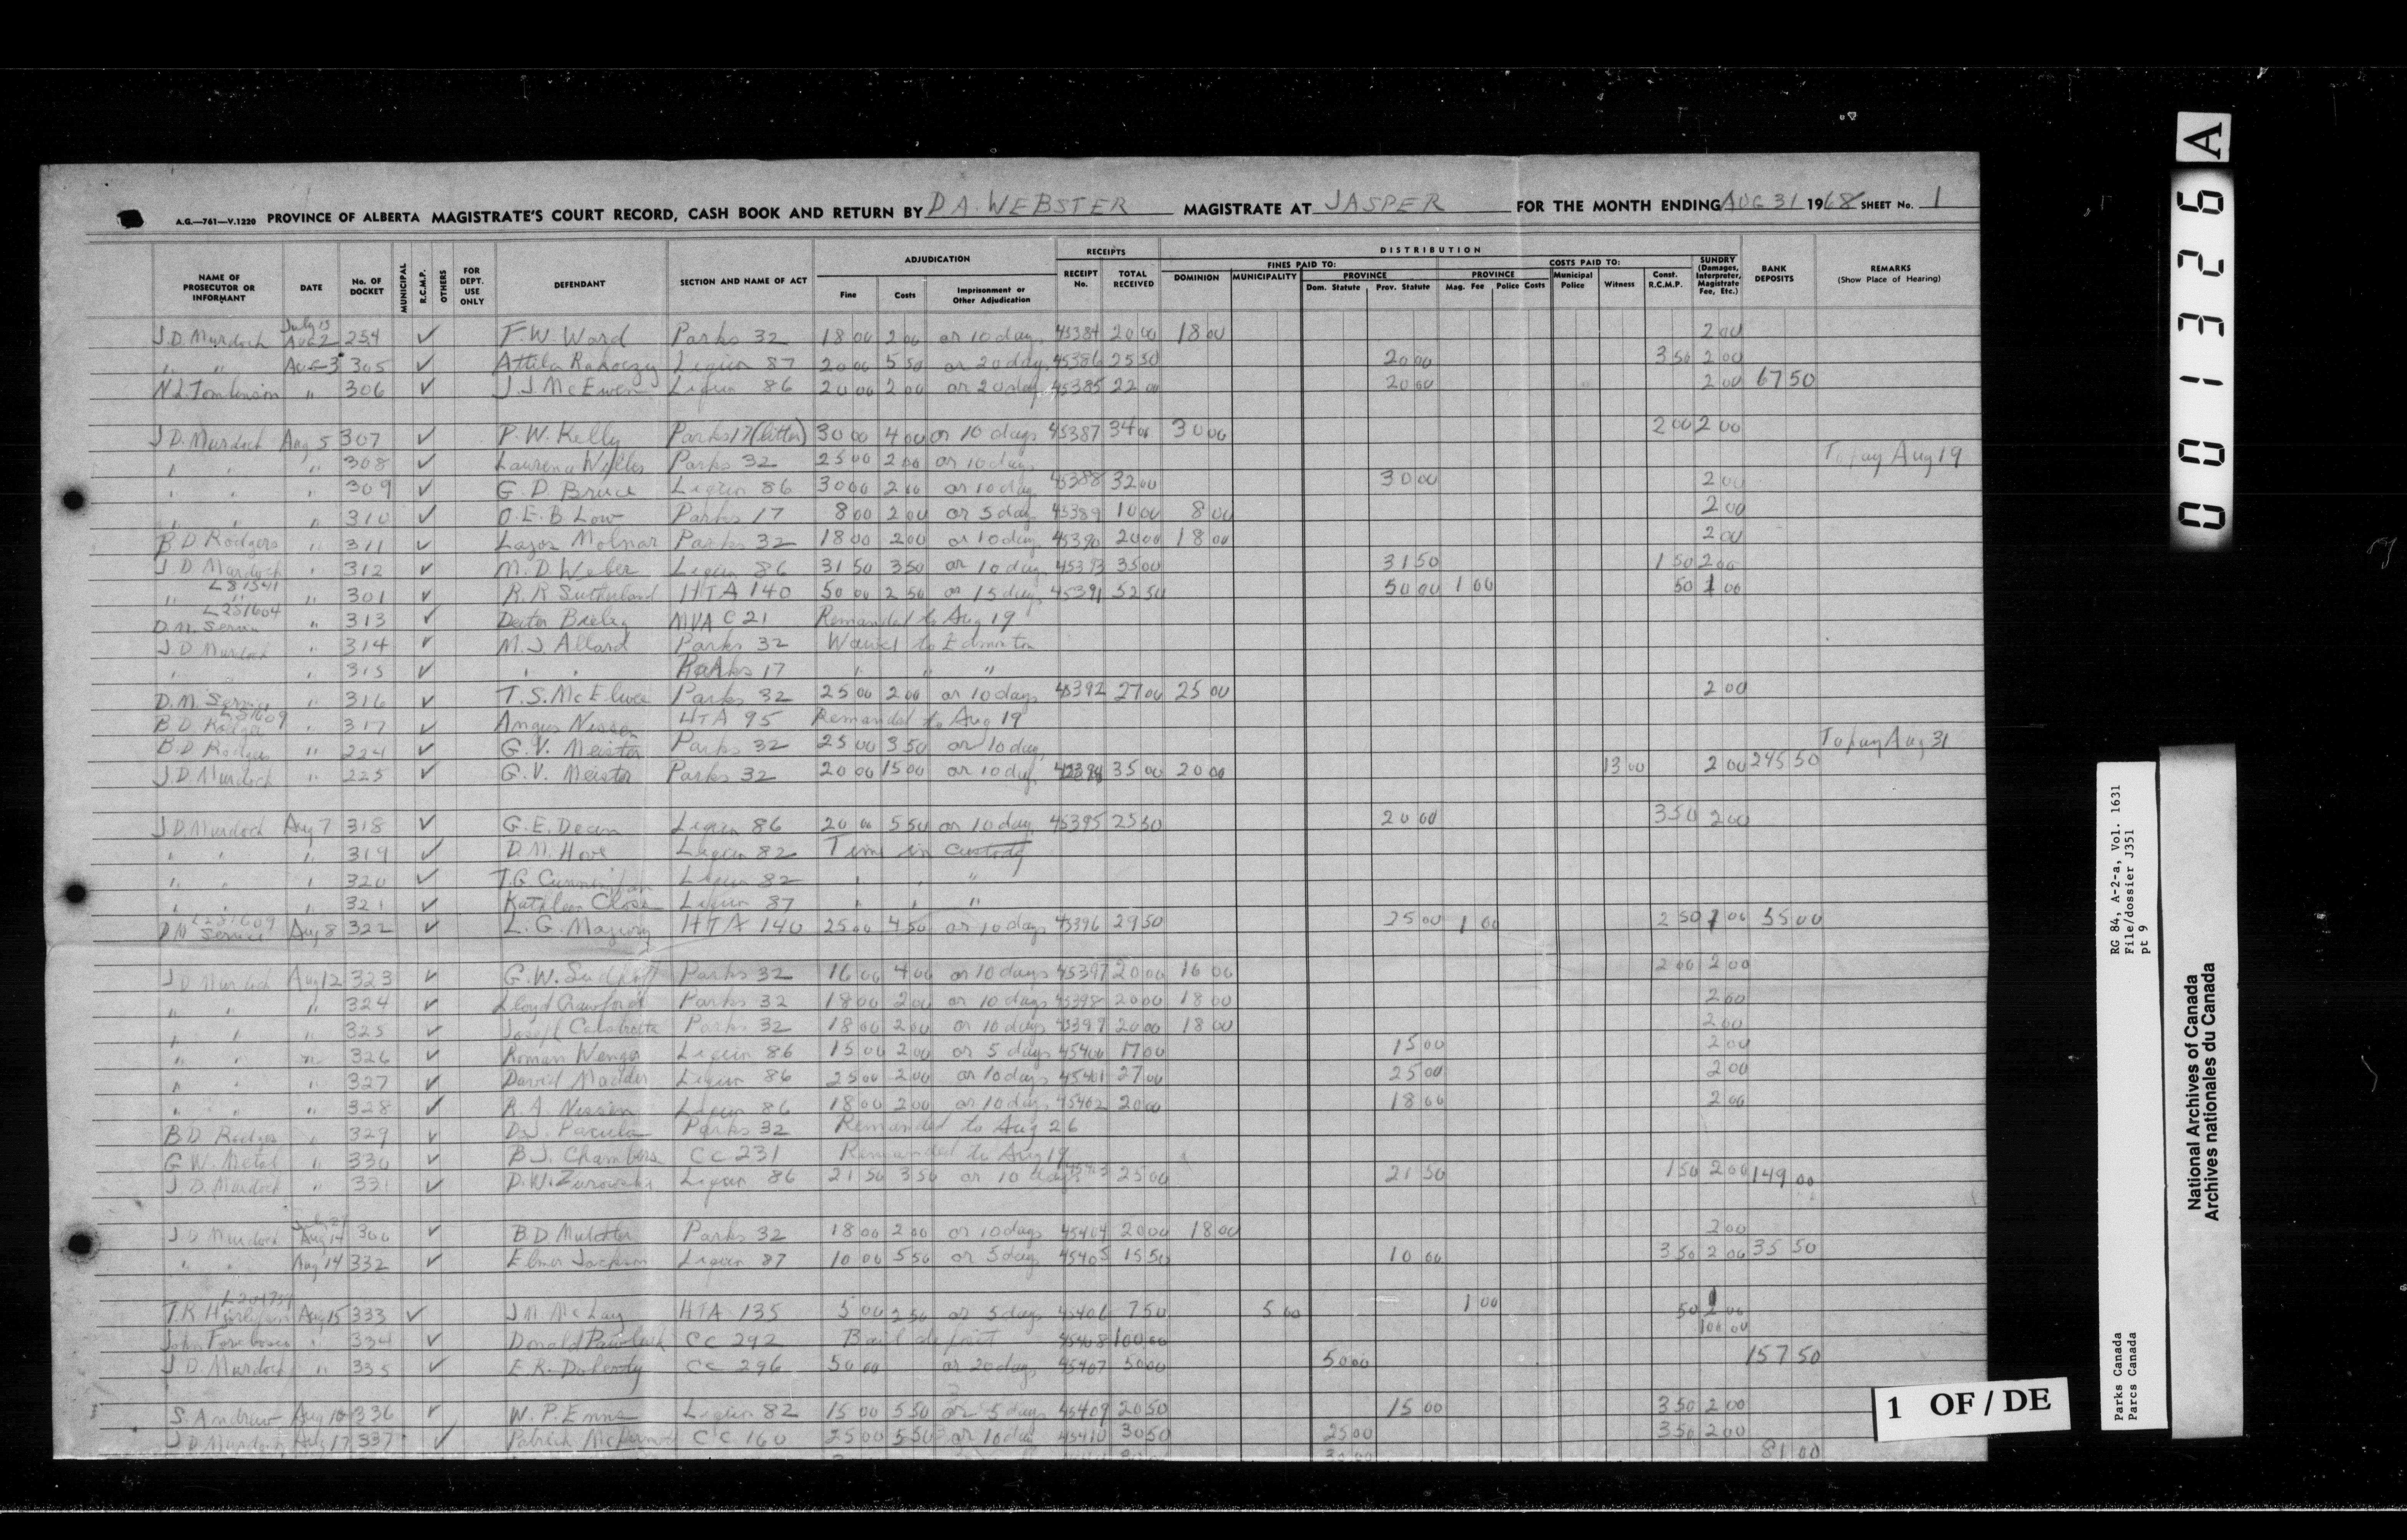 A.G.—761—V.1220 PROVINCE OF ALBERTA MAGISTRATE'S COURT RECORD, CASH BOOK AND RETURN BY D A. WEBSTER MAGISTRATE AT JASPER FOR THE MONTH ENDING AUG 31 1968 SHEET No. 1
ADJUDICATION RECEIPTS DISTRIBUTION
FINES PAID TO: COSTS PAID TO:
NAME OF PROSECUTOR OR INFORMANT DATE No. OF DOCKET MUNICIPAL R.C.M.P. OTHERS FOR DEPT. USE ONLY DEFENDANT SECTION AND NAME OF ACT Fine Costs Imprisonment or Other Adjudication RECEIPT No. TOTAL RECEIVED DOMINION MUNICIPALITY PROVINCE Dom. Statute Prov. Statute PROVINCE Mag. Fee Police Costs Municipal Police Witness Const. R.C.M.P. SUNDRY (Damages, Interpreter, Magistrate Fee, Etc.) BANK DEPOSITS REMARKS (Show Place of Hearing)
July 15
J.D. Murdoch Aug 2 254 ✓ F.W. Ward Parks 32 18 00 2 00 or 10 days 45384 20 00 18 00 2 00
" " Aug 3 305 ✓ Attila Rakoczy Liquor 87 20 00 5 50 or 20 days 45386 25 50 20 00 3 50 2 00
N.L. Tomlinson " 306 ✓ J.J. McEwen Liquor 86 20 00 2 00 or 20 days 45385 22 00 20 00 2 00 67 50
J D. Murdoch Aug 5 307 ✓ P.W. Kelly Parks 17 (litter) 30 00 4 00 or 10 days 45387 34 00 30 00 2 00 2 00
" " " 308 ✓ Parks 32 25 00 2 00 or 10 days To pay Aug 19
" " " 309 ✓ G.D. Bruce Liquor 86 30 00 2 00 or 10 days 45388 32 00 30 00 2 00
" " " 310 ✓ O.E.B. Low Parks 17 8 00 2 00 or 5 days 45389 10 00 8 00 2 00
B D Rodgers " 311 ✓ Molnar Parks 32 18 00 2 00 or 10 days 45390 20 00 18 00 2 00
J D Murdoch " 312 ✓ M.D. Weber Liquor 86 31 50 3 50 or 10 days 45393 35 00 31 50 1 50 2 00
L81541
" " " 301 ✓ R.R Sutherland HTA 140 50 00 2 50 or 15 days 45391 52 50 50 00 1 00 50 1 00
L251604
D.M. Service " 313 ✓ MVA C 21 Remanded to Aug 19
J D Murdoch " 314 ✓ M.J. Allard Parks 32 Waived to Edmonton
" " " 315 ✓ " " Parks 17 " " "
D.M. Service " 316 ✓ T.S. McElwee Parks 32 25 00 2 00 or 10 days 45392 27 00 25 00 2 00
B D Rodgers " 317 ✓ Angus Nissen HTA 95 Remanded to Aug 19
B.D Rodgers " 224 ✓ G.V. Meister Parks 32 25 00 3 50 or 10 days To pay Aug 31
J.D Murdoch " 225 ✓ G.V. Meister Parks 32 20 00 15 00 or 10 days 45394 35 00 20 00 13 00 2 00 245 50
J D. Murdoch Aug 7 318 ✓ G.E. Dean Liquor 86 20 00 5 50 or 10 days 45395 25 50 20 00 3 50 2 00
" " " 319 ✓ D.M. Hove Liquor 82 Time in Custody
" " " 320 ✓ T.G. Cunningham Liquor 82 " " "
" " " 321 ✓ Kathleen Close Liquor 87 " " "
L251609
DM Service Aug 8 322 ✓ L.G. HTA 140 25 00 4 50 or 10 days 45396 29 50 25 00 1 00 2 50 1 00 55 00
J D Murdoch Aug 12 323 ✓ G.W. Parks 32 16 00 4 00 or 10 days 45397 20 00 16 00 2 00 2 00
" " " 324 ✓ Lloyd Crawford Parks 32 18 00 2 00 or 10 days 45398 20 00 18 00 2 00
" " " 325 ✓ Joseph Parks 32 18 00 2 00 or 10 days 45399 20 00 18 00 2 00
" " " 326 ✓ Roman Wenger Liquor 86 15 00 2 00 or 5 days 45400 17 00 15 00 2 00
" " " 327 ✓ David Madder Liquor 86 25 00 2 00 or 10 days 45401 27 00 25 00 2 00
" " " 328 ✓ R.A. Nissen Liquor 86 18 00 2 00 or 10 days 45402 20 00 18 00 2 00
B D Rodgers " 329 ✓ D.J. Pacula Parks 32 Remanded to Aug 26
G W. Metal " 330 ✓ B.J. Chambers CC 231 Remanded to Aug 19
J. D. Murdoch " 331 ✓ D.W. Zurowski Liquor 86 21 50 3 50 or 10 days 45403 25 00 21 50 1 50 2 00 149 00
J D Murdoch Aug 14 300 ✓ B.D Parks 32 18 00 2 00 or 10 days 45404 20 00 18 00 2 00
" " Aug 14 332 ✓ Elmer Jackson Liquor 87 10 00 5 50 or 5 days 45405 15 50 10 00 3 50 2 00 35 50
T.R Aug 15 333 ✓ J.M. McLay HTA 135 5 00 2 50 or 5 days 45406 7 50 5 00 1 00 50 1 00
John " 334 ✓ Donald CC 292 Bail deposit 45408 100 00 100 00
J.D. Murdoch " 335 ✓ E.R. Doherty CC 296 50 00 or 20 days 45407 50 00 50 00 157 50
S. Andrew Aug 16 336 ✓ W.P. Emms Liquor 82 15 00 5 50 or 5 days 45409 20 50 15 00 3 50 2 00
J D Murdoch Aug 17 337 ✓ Patrick CC 160 25 00 5 50 or 10 days 45410 30 50 25 00 3 50 2 00
81 00
1 OF / DE
001326 A
Parks Canada
Parcs Canada
RG 84, A-2-a, Vol. 1631
File/dossier J351
pt 9
National Archives of Canada
Archives nationales du Canada